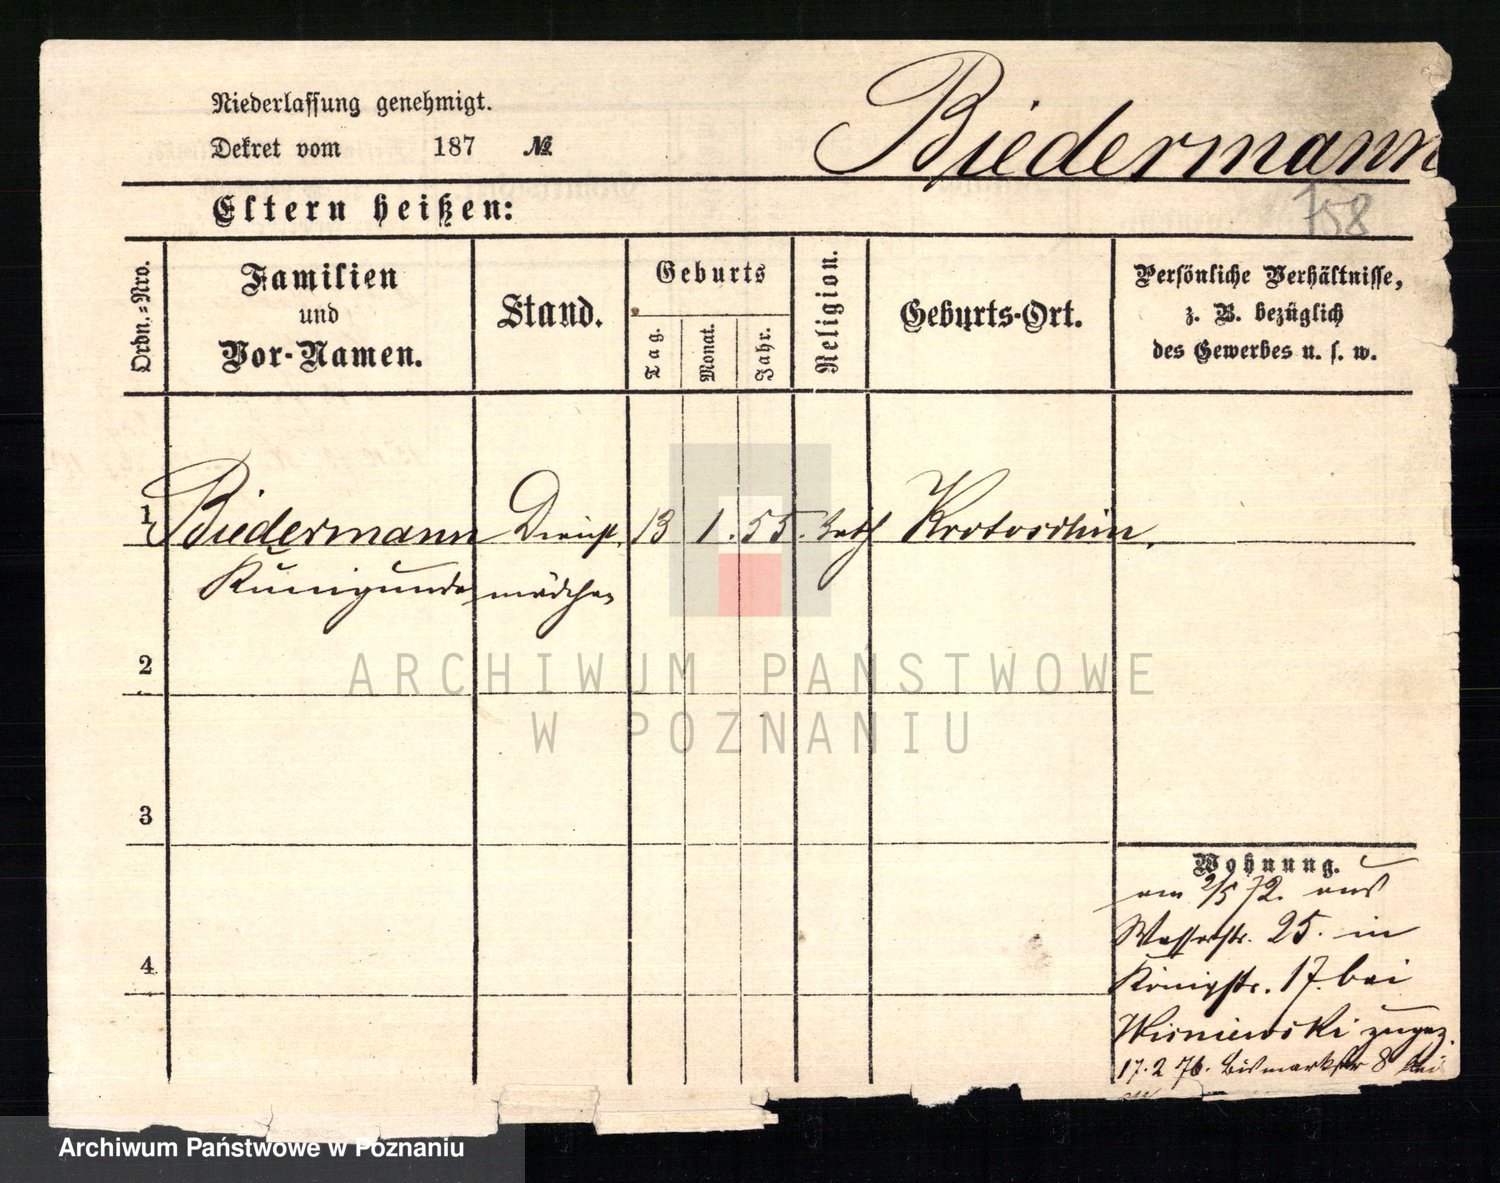 Niederlassung genehmigt.
Dekret vom 187 №
Biedermann
158
Eltern heißen:
Ordn.-Nro.
Familien
und
Vor-Namen.
Stand.
Geburts
Tag.
Monat.
Jahr.
Religion.
Geburts-Ort.
Persönliche Verhältnisse,
z. B. bezüglich
des Gewerbes u. s. w.
1 Biedermann Dienst 13 1. 55. kath Krotoschin.
Kunigunde mädchen
2
ARCHIWUM PAŃSTWOWE
W POZNANIU
3
4
Wohnung.
am 2/5 72. aus
Wasserstr. 25. in
Königstr. 17. bei
Wisniewski zugez.
17. 2 76. Bismarckstr 8 bei
Archiwum Państwowe w Poznaniu